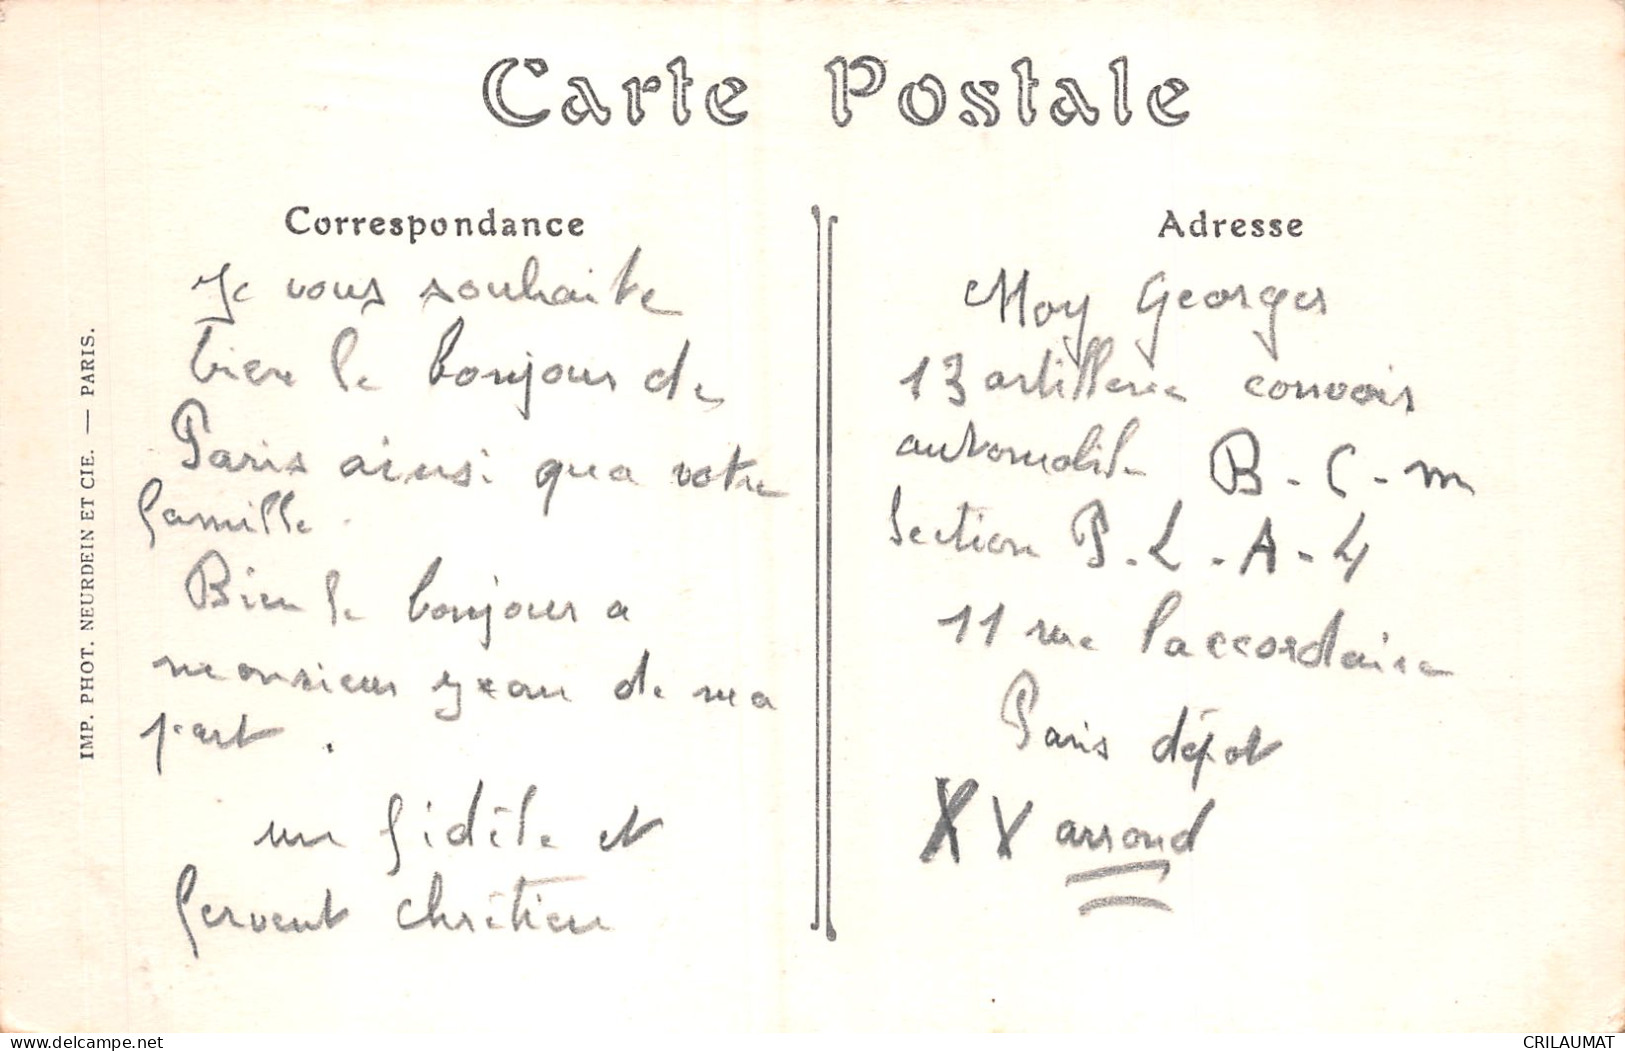 Carte Postale
Correspondance
Je vous souhaite
bien le bonjour de
Paris ainsi qua votre
famille.
Bien le bonjour a
monsieur de ma
part.
un fidèle et
fervent chrétien
Adresse
Moy Georges
13 artillerie convois
automobile B-C-m
Section P-L-A-4
11 rue laccordaire
Paris dépot
XV arrond
IMP. PHOT. NEURDEIN ET CIE. — PARIS.
delcampe.net
CRILAUMAT